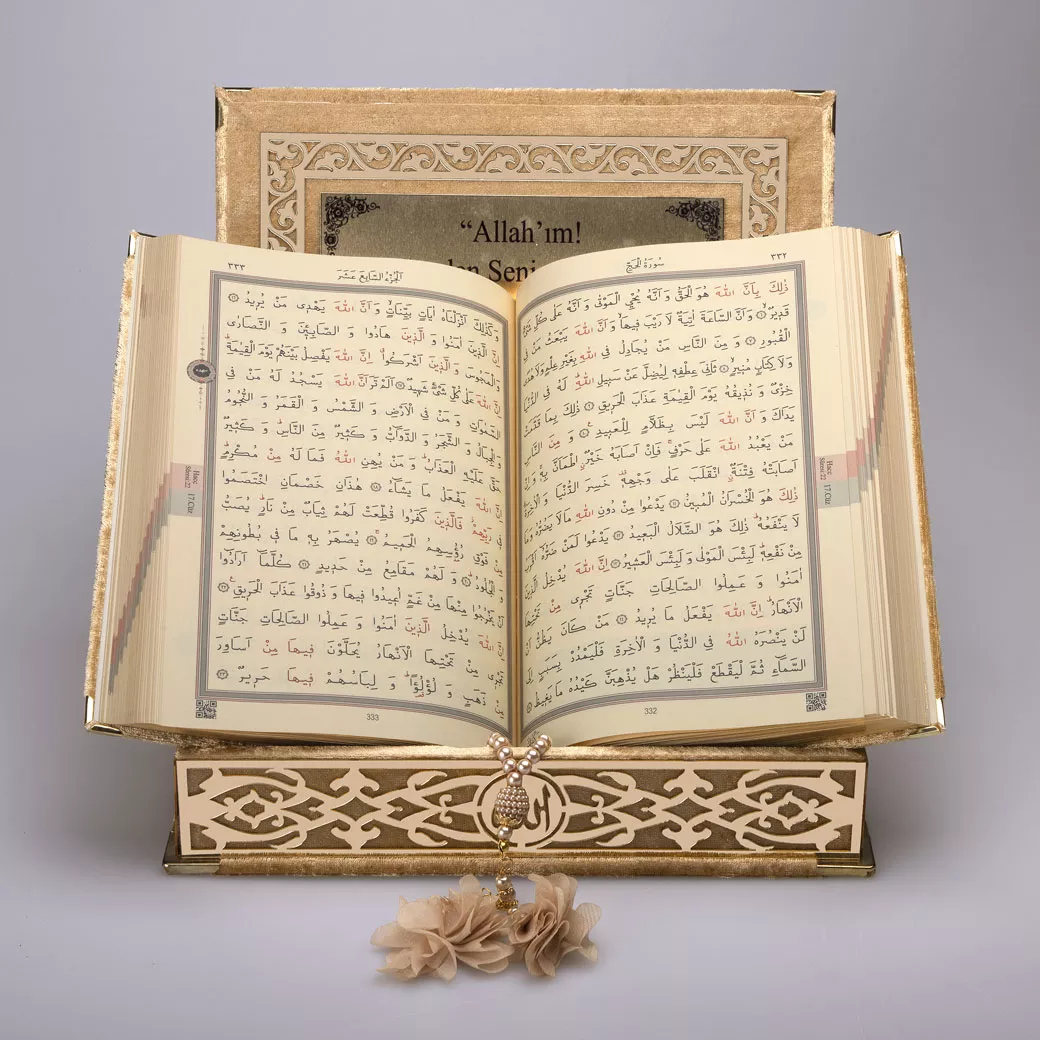 “Allah’ım!
Seni
سُورَةُ الْحَجِّ
٣٣٢
ذٰلِكَ بِاَنَّ اللّٰهَ هُوَ الْحَقُّ وَ اَنَّهُ يُحْيِ الْمَوْتٰى وَ اَنَّهُ عَلٰى كُلِّ شَيْءٍ
قَدِيرٌ ﴿٦﴾ وَ اَنَّ السَّاعَةَ اٰتِيَةٌ لَا رَيْبَ فِيهَا وَ اَنَّ اللّٰهَ يَبْعَثُ مَنْ فِي
الْقُبُورِ ﴿٧﴾ وَ مِنَ النَّاسِ مَنْ يُجَادِلُ فِي اللّٰهِ بِغَيْرِ عِلْمٍ وَلَا هُدًى
وَلَا كِتَابٍ مُنِيرٍ ﴿٨﴾ ثَانِيَ عِطْفِهِ لِيُضِلَّ عَنْ سَبِيلِ اللّٰهِ لَهُ فِي الدُّنْيَا
خِزْيٌ وَ نُذِيقُهُ يَوْمَ الْقِيٰمَةِ عَذَابَ الْحَرِيقِ ﴿٩﴾ ذٰلِكَ بِمَا قَدَّمَتْ
يَدَاكَ وَ اَنَّ اللّٰهَ لَيْسَ بِظَلَّامٍ لِلْعَبِيدِ ﴿١٠﴾ وَ مِنَ النَّاسِ
مَنْ يَعْبُدُ اللّٰهَ عَلٰى حَرْفٍ فَاِنْ اَصَابَهُ خَيْرٌ اطْمَاَنَّ بِهِ وَ اِنْ
اَصَابَتْهُ فِتْنَةٌ انْقَلَبَ عَلٰى وَجْهِهِ خَسِرَ الدُّنْيَا وَ الْاٰخِرَةَ
ذٰلِكَ هُوَ الْخُسْرَانُ الْمُبِينُ ﴿١١﴾ يَدْعُوا مِنْ دُونِ اللّٰهِ مَا لَا يَضُرُّهُ وَمَا
لَا يَنْفَعُهُ ذٰلِكَ هُوَ الضَّلَالُ الْبَعِيدُ ﴿١٢﴾ يَدْعُوا لَمَنْ ضَرُّهُ اَقْرَبُ
مِنْ نَفْعِهِ لَبِئْسَ الْمَوْلٰى وَ لَبِئْسَ الْعَشِيرُ ﴿١٣﴾ اِنَّ اللّٰهَ يُدْخِلُ الَّذِينَ
اٰمَنُوا وَ عَمِلُوا الصَّالِحَاتِ جَنَّاتٍ تَجْرِي مِنْ تَحْتِهَا
الْاَنْهَارُ اِنَّ اللّٰهَ يَفْعَلُ مَا يُرِيدُ ﴿١٤﴾ مَنْ كَانَ يَظُنُّ اَنْ
لَنْ يَنْصُرَهُ اللّٰهُ فِي الدُّنْيَا وَ الْاٰخِرَةِ فَلْيَمْدُدْ بِسَبَبٍ اِلَى
السَّمَاءِ ثُمَّ لْيَقْطَعْ فَلْيَنْظُرْ هَلْ يُذْهِبَنَّ كَيْدُهُ مَا يَغِيظُ ﴿١٥﴾
332
Hacc
Sûresi 22
17.Cüz
٣٣٣
اَلْجُزْءُ السَّابِعَ عَشَرَ
وَ كَذٰلِكَ اَنْزَلْنَاهُ اٰيَاتٍ بَيِّنَاتٍ وَ اَنَّ اللّٰهَ يَهْدِي مَنْ يُرِيدُ ﴿١٦﴾
اِنَّ الَّذِينَ اٰمَنُوا وَ الَّذِينَ هَادُوا وَ الصَّابِئِينَ وَ النَّصَارٰى
وَ الْمَجُوسَ وَ الَّذِينَ اَشْرَكُوا اِنَّ اللّٰهَ يَفْصِلُ بَيْنَهُمْ يَوْمَ الْقِيٰمَةِ
اِنَّ اللّٰهَ عَلٰى كُلِّ شَيْءٍ شَهِيدٌ ﴿١٧﴾ اَلَمْ تَرَ اَنَّ اللّٰهَ يَسْجُدُ لَهُ مَنْ فِي
السَّمٰوَاتِ وَ مَنْ فِي الْاَرْضِ وَ الشَّمْسُ وَ الْقَمَرُ وَ النُّجُومُ
وَ الْجِبَالُ وَ الشَّجَرُ وَ الدَّوَابُّ وَ كَثِيرٌ مِنَ النَّاسِ وَ كَثِيرٌ
حَقَّ عَلَيْهِ الْعَذَابُ وَ مَنْ يُهِنِ اللّٰهُ فَمَا لَهُ مِنْ مُكْرِمٍ
اِنَّ اللّٰهَ يَفْعَلُ مَا يَشَاءُ ﴿١٨﴾ هٰذَانِ خَصْمَانِ اخْتَصَمُوا
فِي رَبِّهِمْ فَالَّذِينَ كَفَرُوا قُطِّعَتْ لَهُمْ ثِيَابٌ مِنْ نَارٍ يُصَبُّ
مِنْ فَوْقِ رُؤُسِهِمُ الْحَمِيمُ ﴿١٩﴾ يُصْهَرُ بِهِ مَا فِي بُطُونِهِمْ
وَ الْجُلُودُ ﴿٢٠﴾ وَ لَهُمْ مَقَامِعُ مِنْ حَدِيدٍ ﴿٢١﴾ كُلَّمَا اَرَادُوا
اَنْ يَخْرُجُوا مِنْهَا مِنْ غَمٍّ اُعِيدُوا فِيهَا وَ ذُوقُوا عَذَابَ الْحَرِيقِ ﴿٢٢﴾
اِنَّ اللّٰهَ يُدْخِلُ الَّذِينَ اٰمَنُوا وَ عَمِلُوا الصَّالِحَاتِ جَنَّاتٍ
تَجْرِي مِنْ تَحْتِهَا الْاَنْهَارُ يُحَلَّوْنَ فِيهَا مِنْ اَسَاوِرَ
مِنْ ذَهَبٍ وَ لُؤْلُؤًا وَ لِبَاسُهُمْ فِيهَا حَرِيرٌ ﴿٢٣﴾
333
Hacc
Sûresi 22
17.Cüz
الله